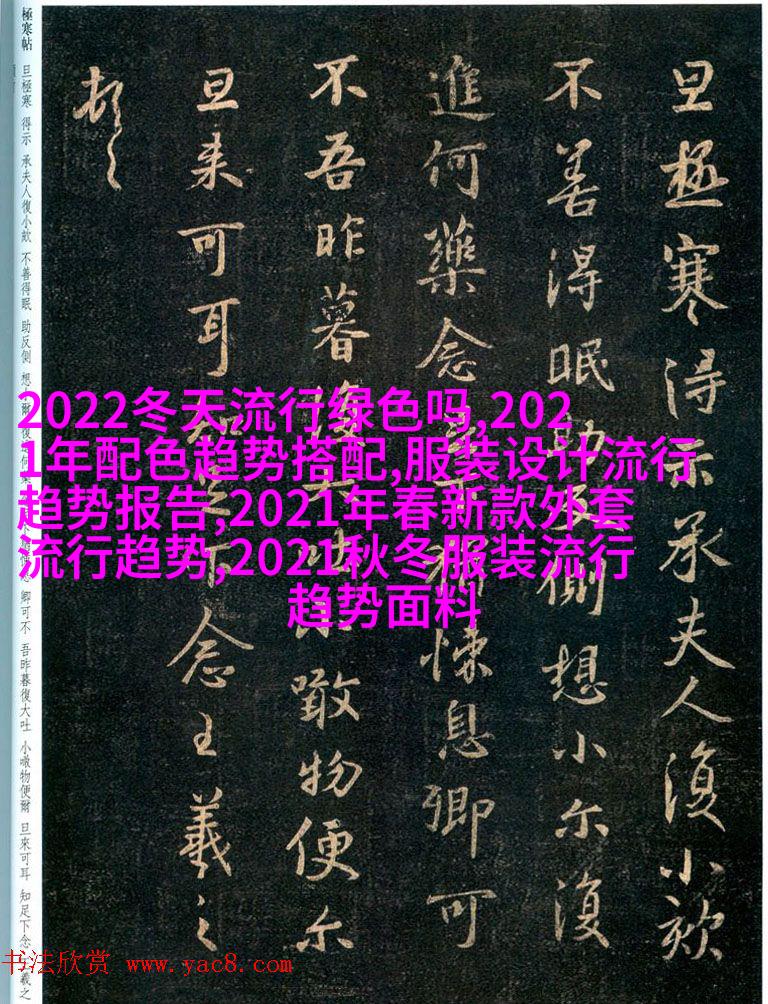 極寒帖
旦極寒 得示 承夫人復小欬 不善得眠 助反側 想 爾復進何 卿可不 吾昨暮復大吐 小噉物便爾 旦來可耳 知足下念 王羲之
旦極寒得示承夫人復小欬
不善得眠助反側想小尔復
進何藥念足下猶悚息卿可
不吾昨暮復大吐小噉物便尔
旦来可耳知足下念王羲之
頓首
2022冬天流行绿色吗,202
1年配色趋势搭配,服装设计流行
趋势报告,2021年春新款外套
流行趋势,2021秋冬服装流行
趋势面料
书法欣赏 www.yac8.com